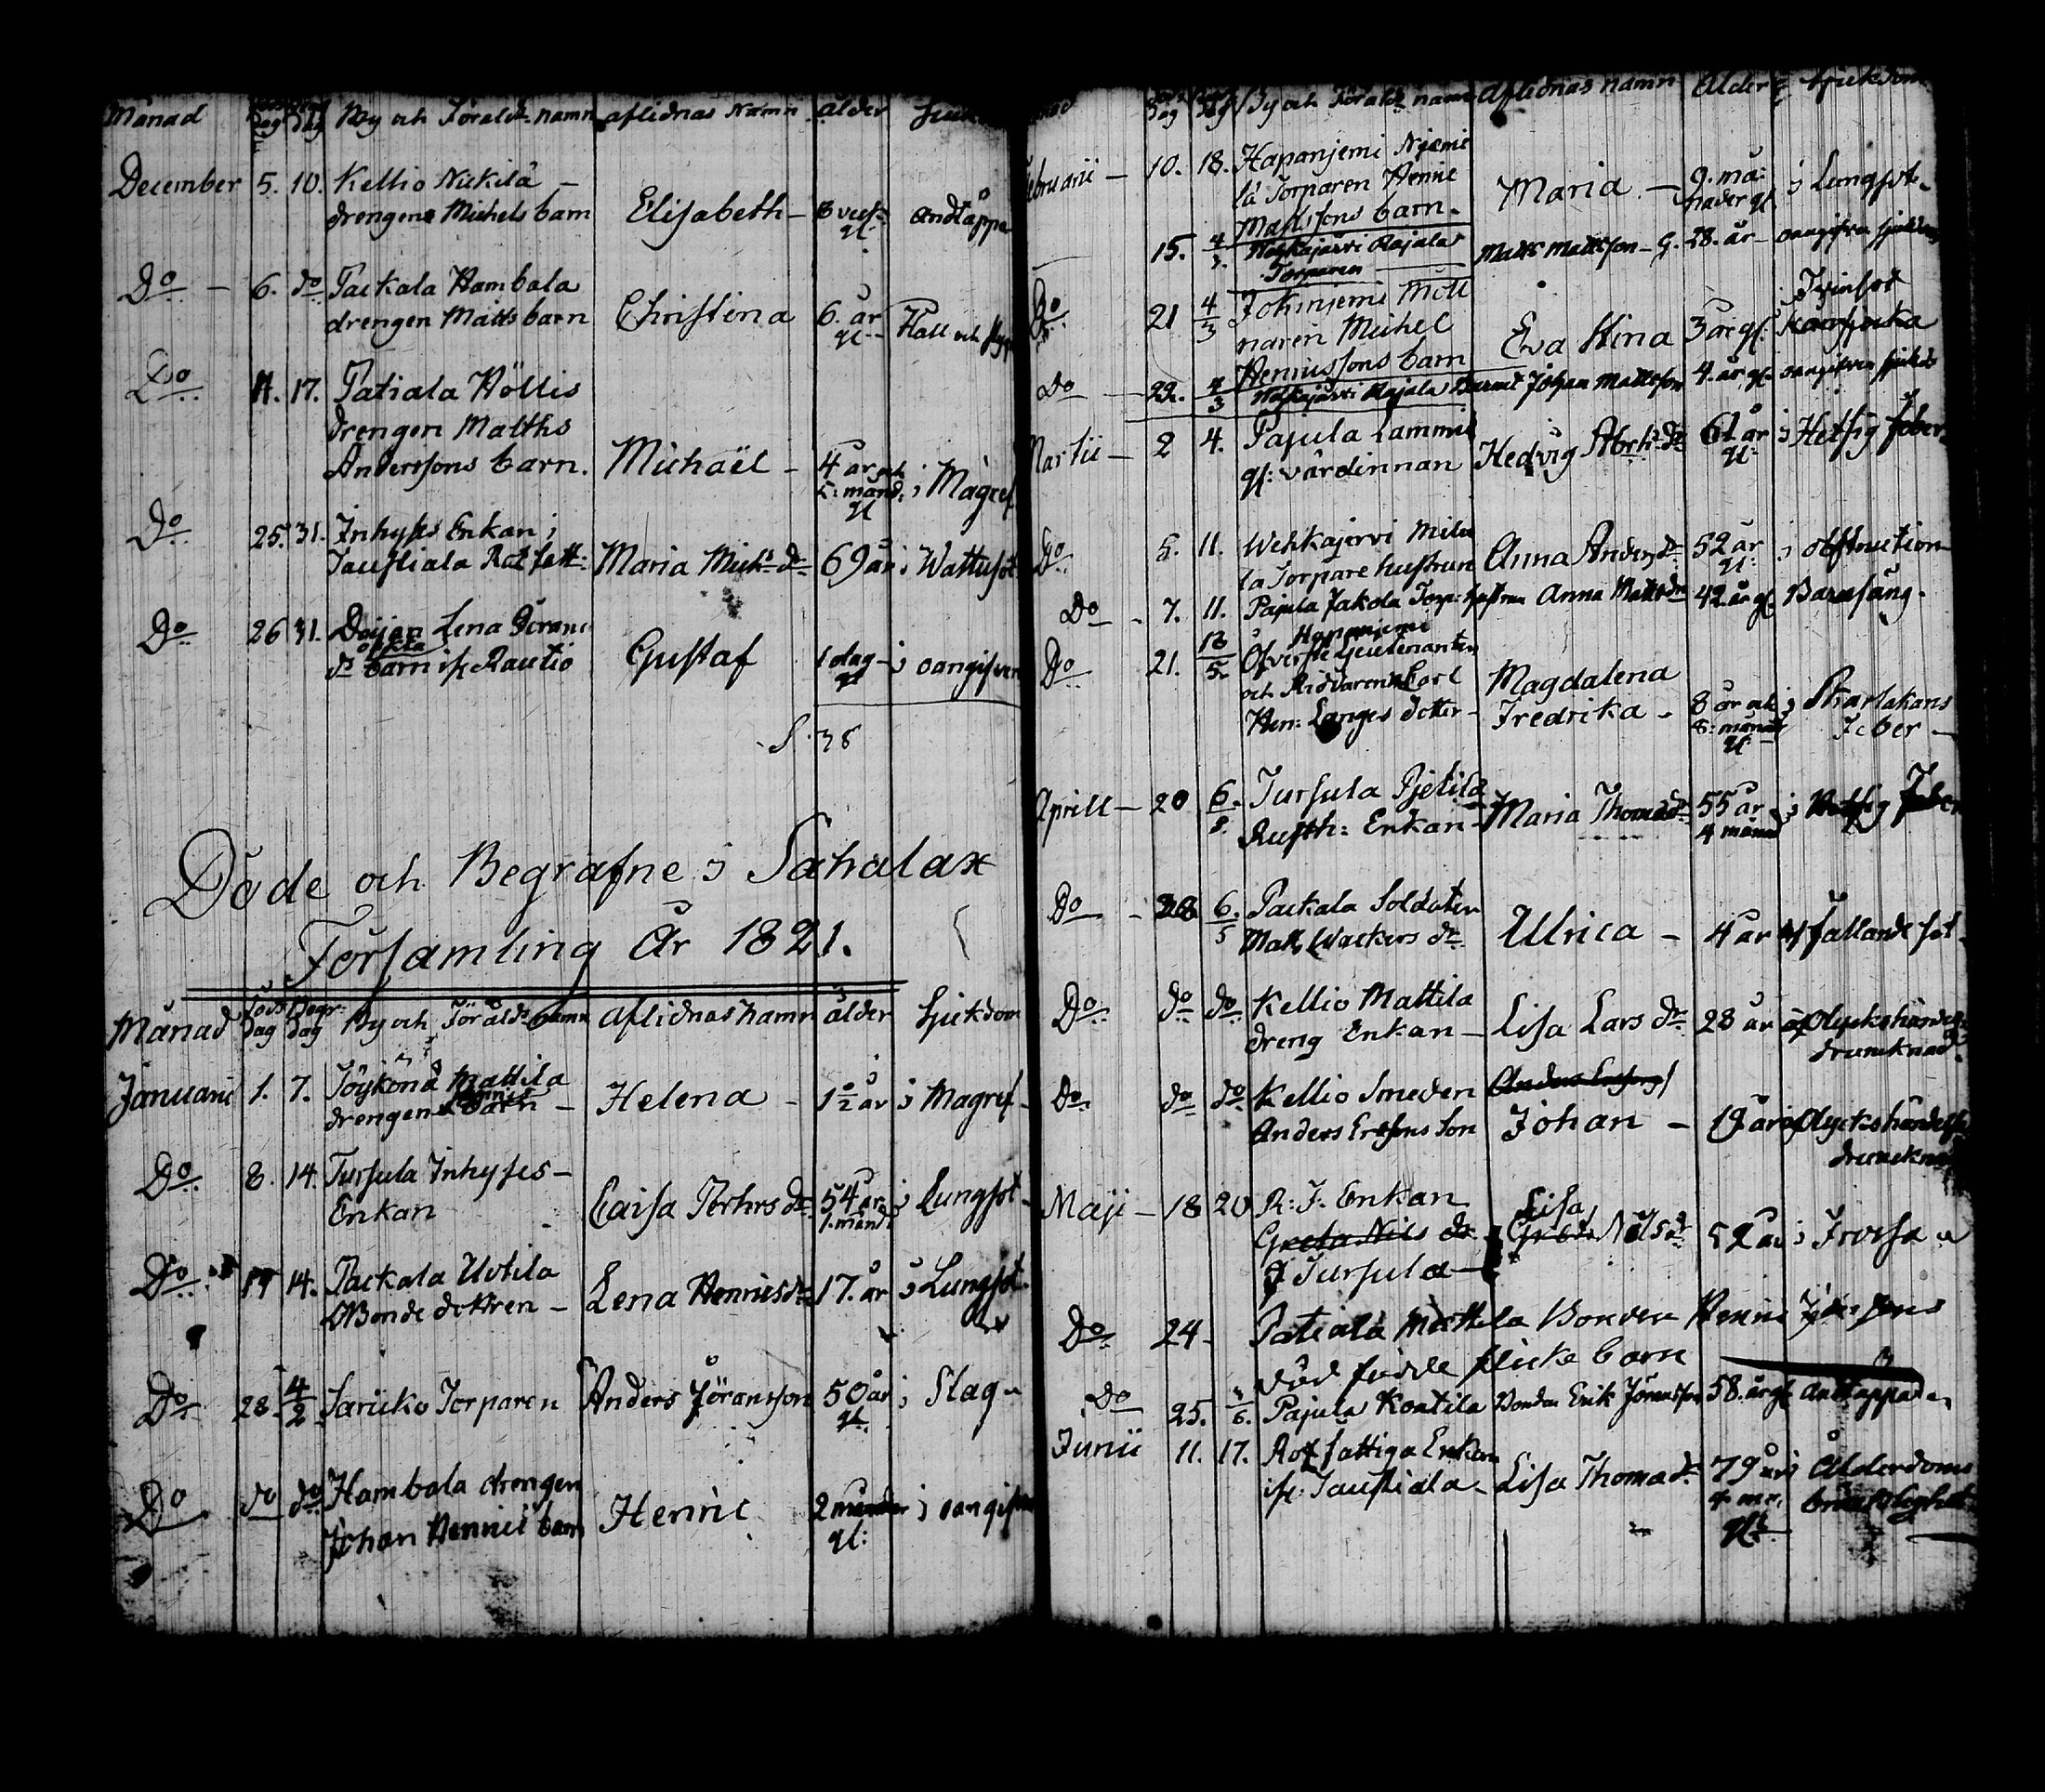 Månad Dag Dag By och Föräld: namn aflidnas Namn ålder
December 5. 10. Kellio Nickilä –
drengens Michels barn Elisabeth – andtäppa
Do – 6. do Packala Hambala
drengen Matts barn Christina 6. år Hall och
gl –
Do 11. 17. Patiala Höllis
drengen Matths
Anderssons barn. Michaël – 4 år och i Magref
5: månd:
gl
Do 25. 31. Inhyses Enkan i
Taustiala Rotfatt: Maria Mich: dr 69 år i Wattusot
Do 26 31. Lena Görans
oäkta
dr barn if: Rautio Gustaf 1 dag – i oangifven
gl
S. 38
Döde och Begrafne i Sahalax
Församling År 1821.
Månad Död Dag Begr. Dag By och Föräld: namn Aflidnas namn ålder Sjukdom
Januarii 1. 7. Pöykönä Mattila
drengens barn – Helena – 1½ år i Magref –
Do 8. 14. Tursula Inhyses –
Enkan Caisa 54 år i Lungsot –
1. månd:
Do 14. Packala Uotila
Bonde dottren – Lena Henricsdr 17. år i Lungsot
Do 28. 4/2 Sariko Torparen Anders Jöransson 50 år i Slag –
gl.
Do do do Hambala drengen
Johan Henrics barn Henric 2 månader i oangifven
gl:
Dag Dag By och Föräld: namn Aflidnas namn Ålder Sjukdom
Februarii – 10. 18. Hapanjemi Njemi
lä Torparen Henric
Mattssons barn – Maria – 9. må: i Lungsot.
nader gl.
15. 4/3. Wehkajärvi Rajalas
Torparen Matts Mattsson – G. 28. år – oangifven sjukdom
Do 21 4/3 Jokinjemi Möll
naren Michel
Henricssons barn Eva Stina 3 år gl:
Do 22. 4/3 Wehkajärvi Rajala Johan Mattsson 4. år gl. oangifven
Martii – 2 4. Pajula Lammi
gl: värdinnan Hedvig Abrh: dr 61 år i Hetsig feber
gl:
Do 5. 11. Wehkajervi Mike
lä Torpare hustrun Anna Anders dr 52 år i obstruction
gl:
Do – 7. 11. Pajula Jakola Torp: hustrun Anna Matts dr 42 år gl. Barnsäng.
Hapanjemi
Do 21. Öfverste Lieutenanten
och Riddarens Carl Magdalena
Hen: Langes dotter – Fredrika – 8 år och i Skarlakans
8: månad: Feber –
gl –
Aprill – 20 6/5. Tursula Pjetilä
Rusth: Enkan – Maria Thomasdr 55 år i Hetsig Feber
4 månad
Do – 28 6/5 Packala Soldaten
Matts Wackers dr. Ulrica – 4 år af fallande sot –
Do do do Kellio Mattila
dreng Enkan – Lisa Lars dr 28 år af Olyckshändelse
druncknad
Do do do Kellio Smeden
Anders Ersons Son Johan – 19 år af Olyckshändelse
druncknad
Maji – 18 20 R: F: Enkan Lisa
Greta Nils dr Greta Nilsdr 52 år i Frossa
i Tursula –
Do 24 – Patiala Mattila Bonden Henric
död födde flicke barn
Do 25. Pajula Kontila Bonden Erik Jöransson 58. år gl andtäppa
Junii 11. 17. Rotfattiga Enkan
if: Taustiala – Lisa Thomasdr 79 år i Ålderdoms
bräcklighet
gl: